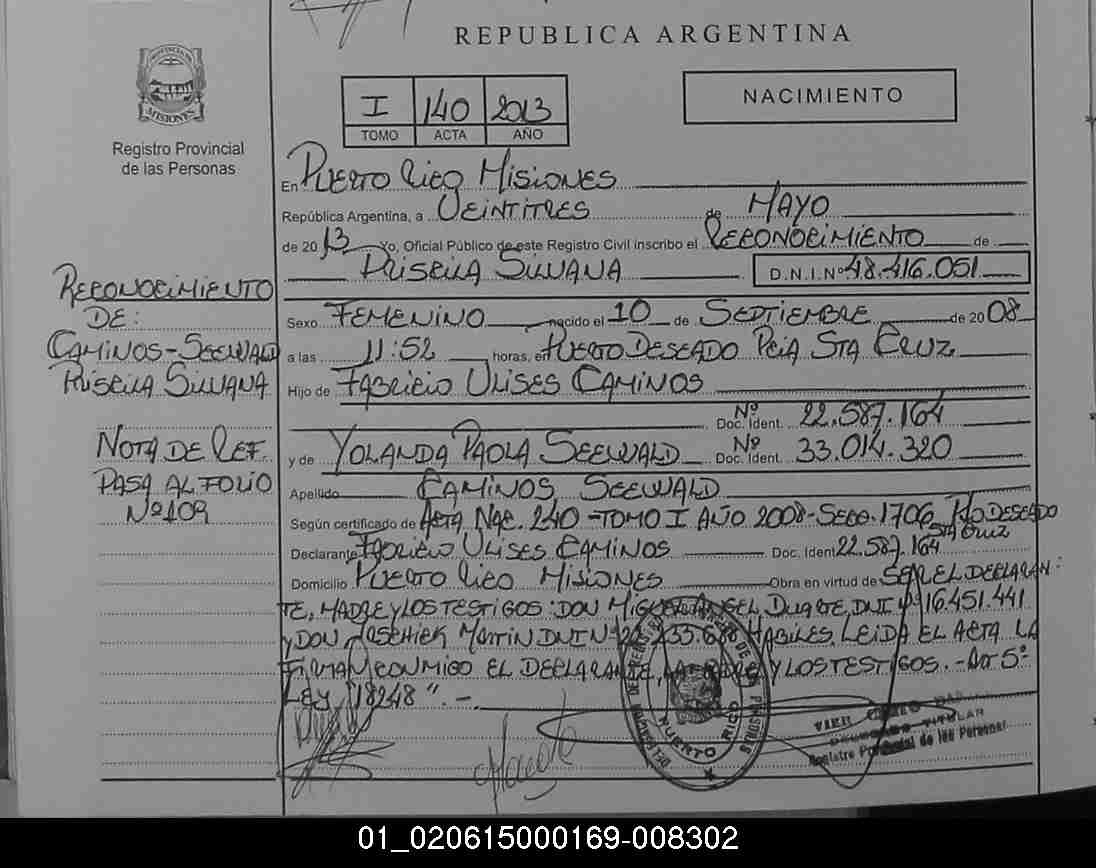 REPUBLICA ARGENTINA
PROVINCIA DE
MISIONES
Registro Provincial
de las Personas
I 140 2013
TOMO ACTA AÑO
NACIMIENTO
En PUERTO RICO MISIONES
República Argentina, a VEINTITRES de MAYO
de 2013 Yo, Oficial Público de este Registro Civil inscribo el RECONOCIMIENTO de
PRISCILA SILVANA D.N.I.Nº 48.416.051
Sexo FEMENINO nacido el 10 de SEPTIEMBRE de 2008
a las 11:52 horas, en PUERTO DESEADO PCIA STA CRUZ
Hijo de FABRICIO ULISES CAMINOS
Doc. Ident. Nº 22.587.164
y de YOLANDA PAOLA SEEWALD Doc. Ident. Nº 33.014.320
Apellido CAMINOS SEEWALD
Según certificado de ACTA NAC. 240 - TOMO I AÑO 2008 - SECC. 1706 PTO DESEADO
STA CRUZ
Declarante FABRICIO ULISES CAMINOS Doc. Ident. 22.587.164
Domicilio PUERTO RICO MISIONES Obra en virtud de SER EL DECLARAN-
TE, MADRE Y LOS TESTIGOS: DON MIGUEL ANGEL DUARTE, DNI Nº 16.451.441
y DON MARTIN DNI Nº 22.233.688 HABILES, LEIDA EL ACTA LA
FIRMAN CONMIGO EL DECLARANTE, LA MADRE Y LOS TESTIGOS. - Art 5º
LEY "18248". -
RECONOCIMIENTO
DE:
CAMINOS-SEEWALD
PRISCILA SILVANA
NOTA DE REF.
PASA AL FOLIO
Nº 109
PUERTO RICO
TITULAR
Registro Provincial de las Personas
01_020615000169-008302